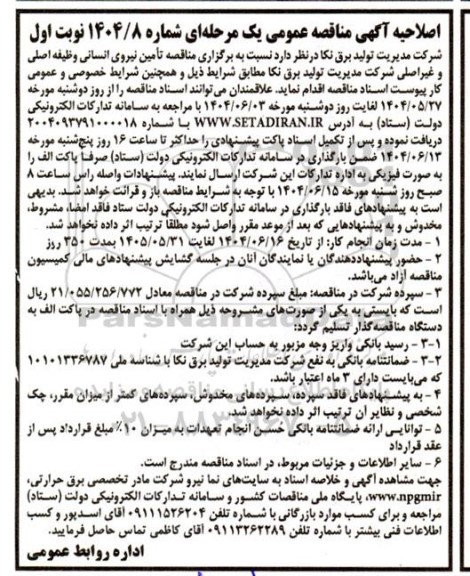 اصلاحیه آگهی مناقصه عمومی یک مرحله‌ای شماره ۱۴۰۴/۸ نوبت اول
شرکت مدیریت تولید برق نکا در نظر دارد نسبت به برگزاری مناقصه تأمین نیروی انسانی وظیفه اصلی
و غیراصلی شرکت مدیریت تولید برق نکا مطابق شرایط ذیل و همچنین شرایط خصوصی و عمومی
کار پیوست اسناد مناقصه اقدام نماید. علاقمندان می‌توانند اسناد مناقصه را از روز دوشنبه مورخه
۱۴۰۴/۰۵/۲۷ لغایت روز دوشنبه مورخه ۱۴۰۴/۰۶/۰۳ با مراجعه به سامانه تدارکات الکترونیکی
دولت (ستاد) به آدرس WWW.SETADIRAN.IR با شماره ۲۰۰۴۰۹۳۷۹۱۰۰۰۰۱۸
دریافت نموده و پس از تکمیل اسناد پاکت پیشنهادی را حداکثر تا ساعت ۱۶ روز پنج‌شنبه مورخه
۱۴۰۴/۰۶/۱۳ ضمن بارگذاری در سامانه تدارکات الکترونیکی دولت (ستاد) صرفا پاکت الف را
به صورت فیزیکی به اداره تدارکات این شرکت ارسال نمایند. پیشنهادات واصله راس ساعت ۸
صبح روز شنبه مورخه ۱۴۰۴/۰۶/۱۵ با توجه به شرایط مناقصه باز و قرائت خواهد شد. بدیهی
است به پیشنهادهای فاقد بارگذاری در سامانه تدارکات الکترونیکی دولت ستاد فاقد امضاء، مشروط،
مخدوش و به پیشنهادهایی که بعد از موعد مقرر واصل شود مطلقا ترتیب اثر داده نخواهد شد.
۱ - مدت زمان انجام کار: از تاریخ ۱۴۰۴/۰۶/۱۶ لغایت ۱۴۰۵/۰۵/۳۱ بمدت ۳۵۰ روز
۲ - حضور پیشنهاددهندگان یا نمایندگان آنان در جلسه گشایش پیشنهادهای مالی کمیسیون
مناقصه آزاد می‌باشد.
۳ - سپرده شرکت در مناقصه: مبلغ سپرده شرکت در مناقصه معادل ۲۱/۰۵۵/۲۵۶/۷۷۲ ریال
است که بایستی به یکی از صورت‌های مشروحه ذیل همراه با اسناد مناقصه در پاکت الف به
دستگاه مناقصه‌گذار تسلیم گردد:
۳-۱ - رسید بانکی واریز وجه مزبور به حساب این شرکت
۳-۲ - ضمانتنامه بانکی به نفع شرکت مدیریت تولید برق نکا با شناسه ملی ۱۰۱۰۱۳۳۶۷۸۷
که می‌بایست دارای ۳ ماه اعتبار باشد.
۴ - به پیشنهادهای فاقد سپرده، سپرده‌های مخدوش، سپرده‌های کمتر از میزان مقرر، چک
شخصی و نظایر آن ترتیب اثر داده نخواهد شد.
۵ - توانایی ارائه ضمانتنامه بانکی حسن انجام تعهدات به میزان ۱۰٪ مبلغ قرارداد پس از
عقد قرارداد
۶ - سایر اطلاعات و جزئیات مربوط، در اسناد مناقصه مندرج است.
جهت مشاهده آگهی و خلاصه اسناد به سایت‌های نما نیرو شرکت مادر تخصصی برق حرارتی،
www.npgmir، پایگاه ملی مناقصات کشور و سامانه تدارکات الکترونیکی دولت (ستاد)
مراجعه و برای کسب موارد بازرگانی با شماره تلفن ۰۹۱۱۱۵۲۶۲۰۴ آقای اسدپور و کسب
اطلاعات فنی بیشتر با شماره تلفن ۰۹۱۱۳۲۶۲۲۸۹ آقای کاظمی تماس حاصل فرمایید.
اداره روابط عمومی